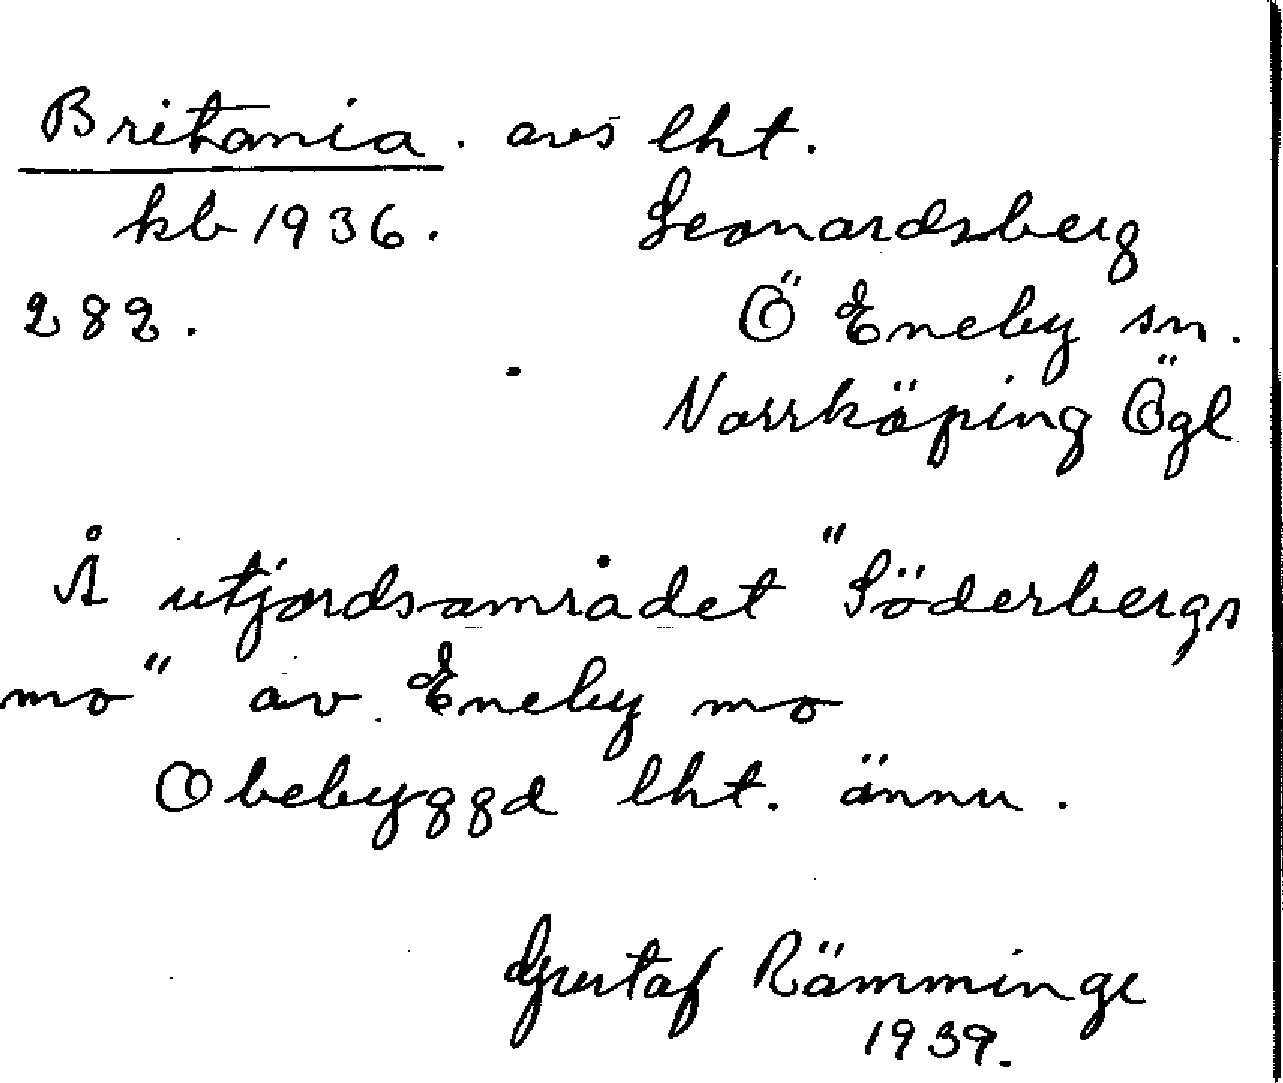 Britania. avs lht.
kb 1936. Leonardsberg
282. Ö Eneby sn.
Norrköping Ögl
Å utjordsområdet "Söderbergs
mo" av Eneby mo
Obebyggd lht. ännu.
Gustaf Rämminge
1939.